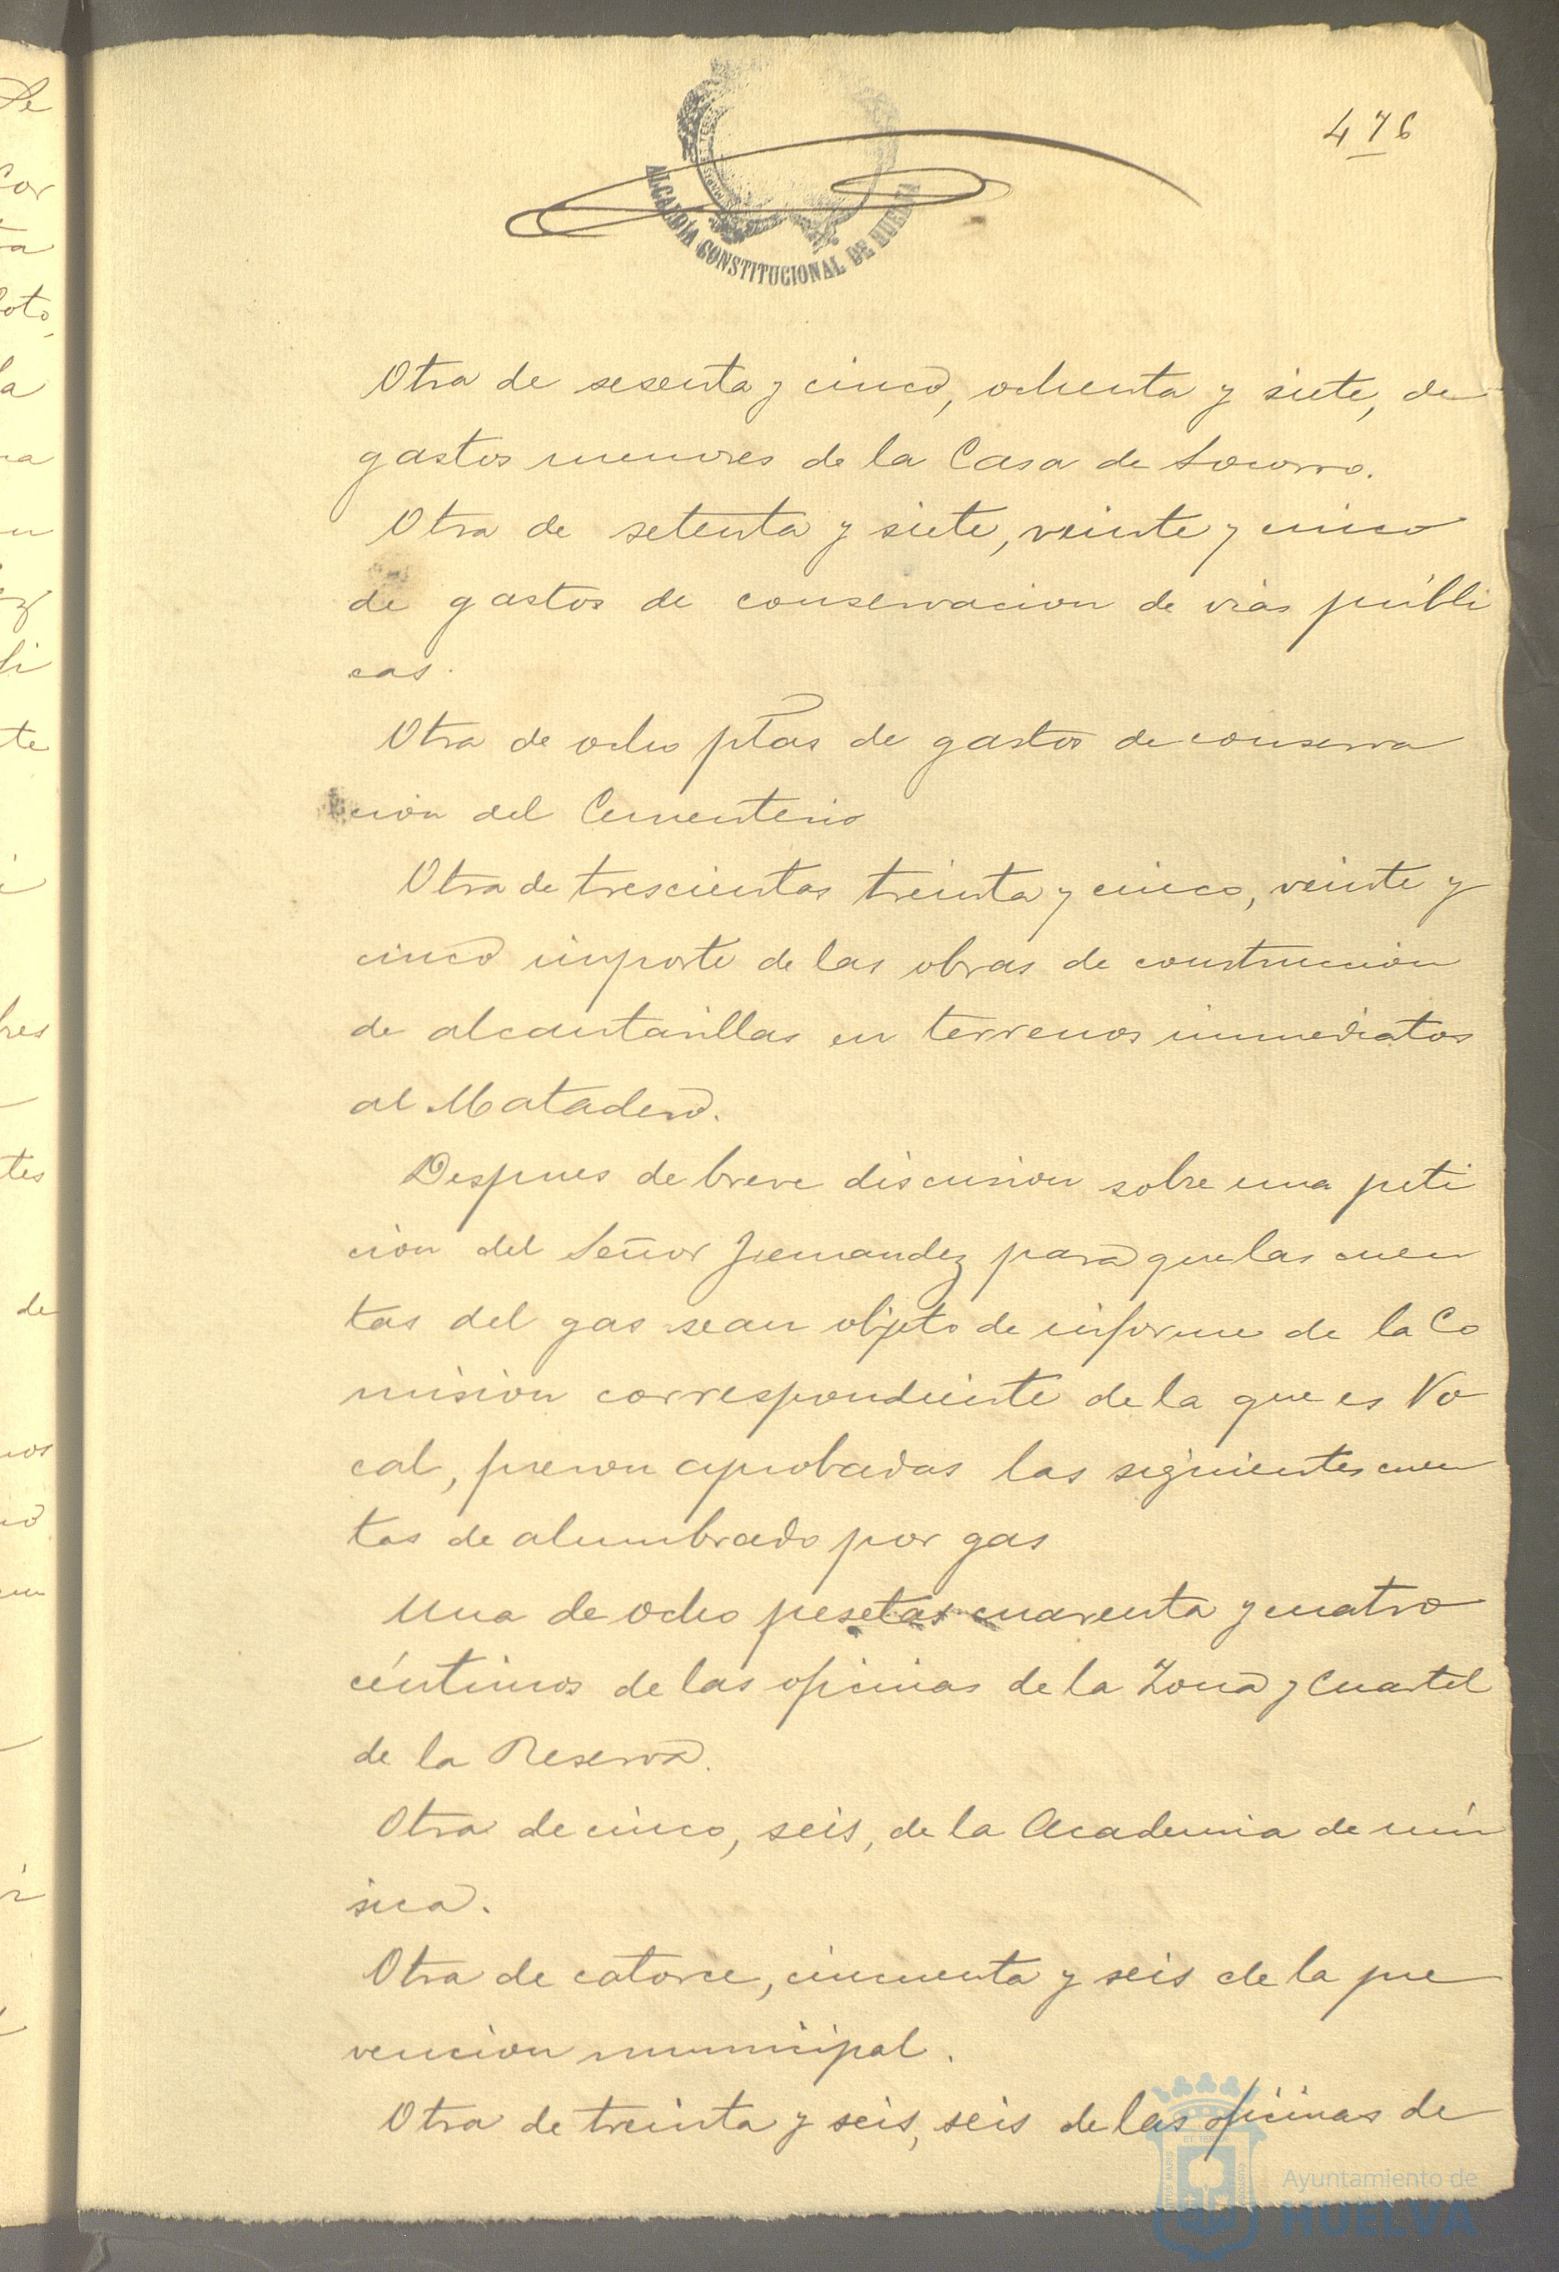 476
ALCALDÍA CONSTITUCIONAL DE HUELVA
Otra de sesenta y cinco, ochenta y siete, de
gastos menores de la Casa de Socorro.
Otra de setenta y siete, veinte y cinco
de gastos de conservacion de vias públi
cas.
Otra de ocho ptas de gastos de conserva
cion del Cementerio
Otra de trescientas treinta y cinco, veinte y
cinco importe de las obras de construccion
de alcantarillas en terrenos inmediatos
al Matadero.
Despues de breve discusion sobre una peti
cion del Señor Fernandez para que las cuen
tas del gas sean objeto de informe de la Co
mision correspondiente de la que es Vo
cal, fueron aprobadas las siguientes cuen
tas de alumbrado por gas
Una de ocho pesetas cuarenta y cuatro
céntimos de las oficinas de la Zona y Cuartel
de la Reserva.
Otra de cinco, seis, de la Academia de mú
sica.
Otra de catorce, cincuenta y seis de la pre
vencion municipal.
Otra de treinta y seis, seis de las oficinas de
Ayuntamiento de
HUELVA